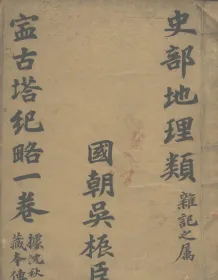 史部地理類 雜記之屬
國朝吳桭臣
寍古塔紀略一卷
據沈秋
藏本傳